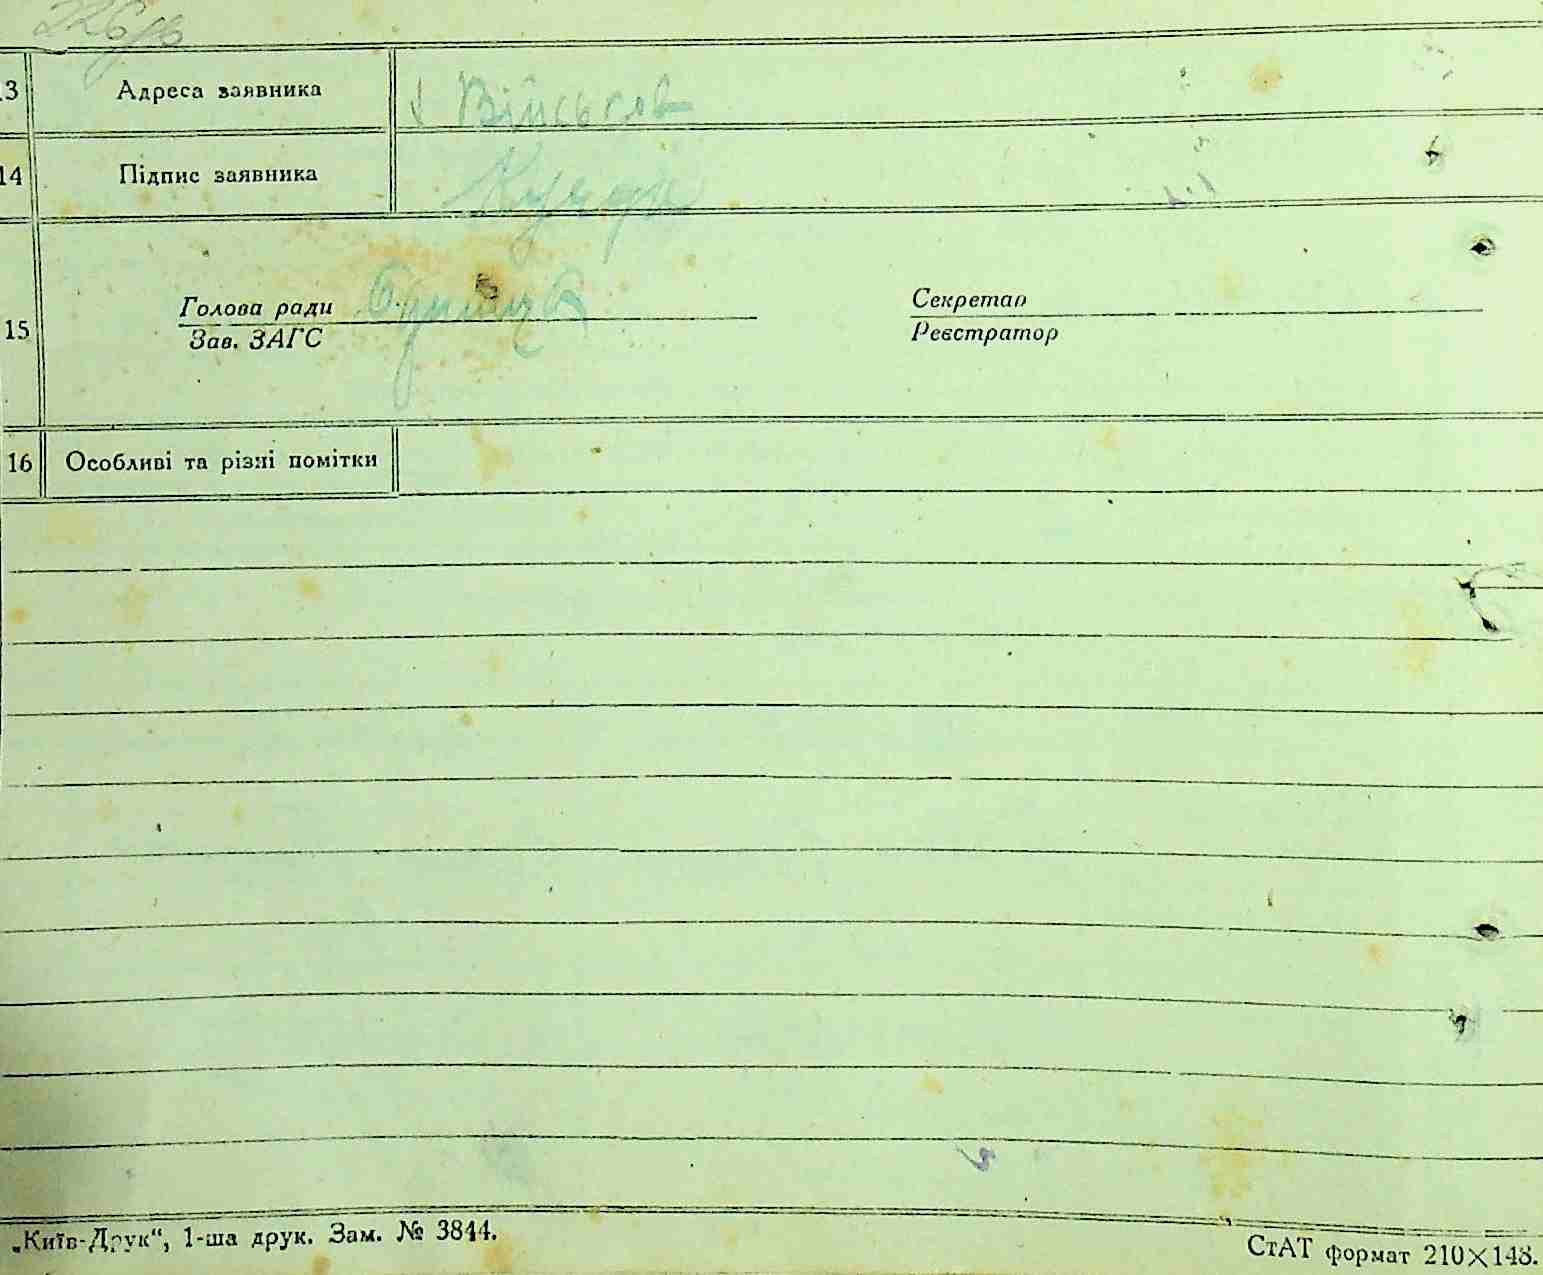 226
13 Адреса заявника
14 Підпис заявника
15 Голова ради Секретар
Зав. ЗАГС Реєстратор
16 Особливі та різні помітки
„Київ-Друк“, 1-ша друк. Зам. № 3844.
СтАТ формат 210×148.